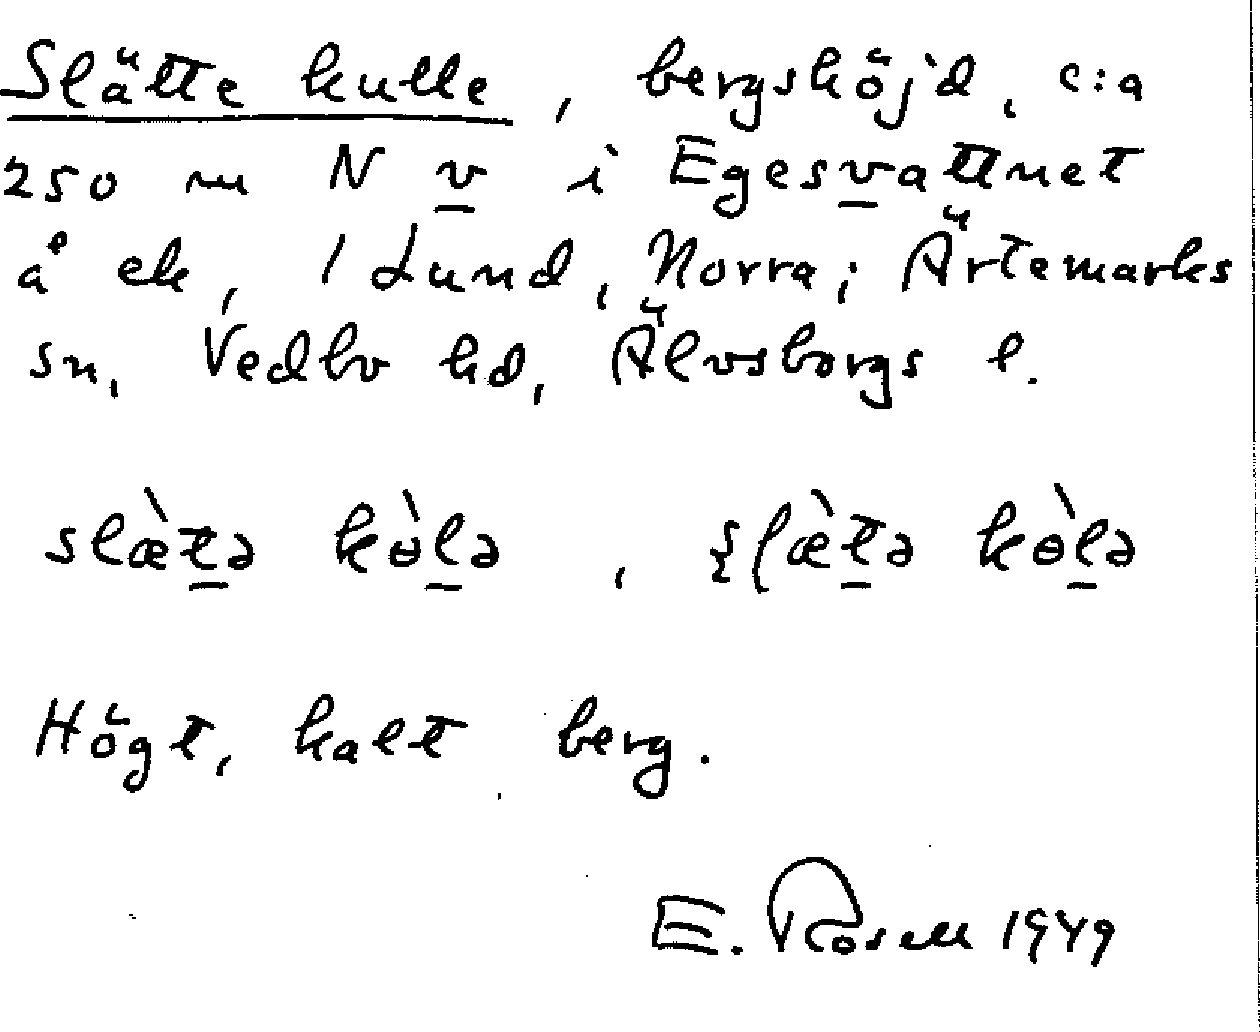 Slätte kulle, bergshöjd, c:a
250 m N v i Egesvattnet
å ek, 1 Lund, Norra; Ärtemarks
sn, Vedbo hd, Älvsborgs l.
slæ̀t̲ə kɵ̀l̲ə, ʂlæ̀t̲ə kɵ̀l̲ə
Högt, kalt berg.
E. Rosell 1949